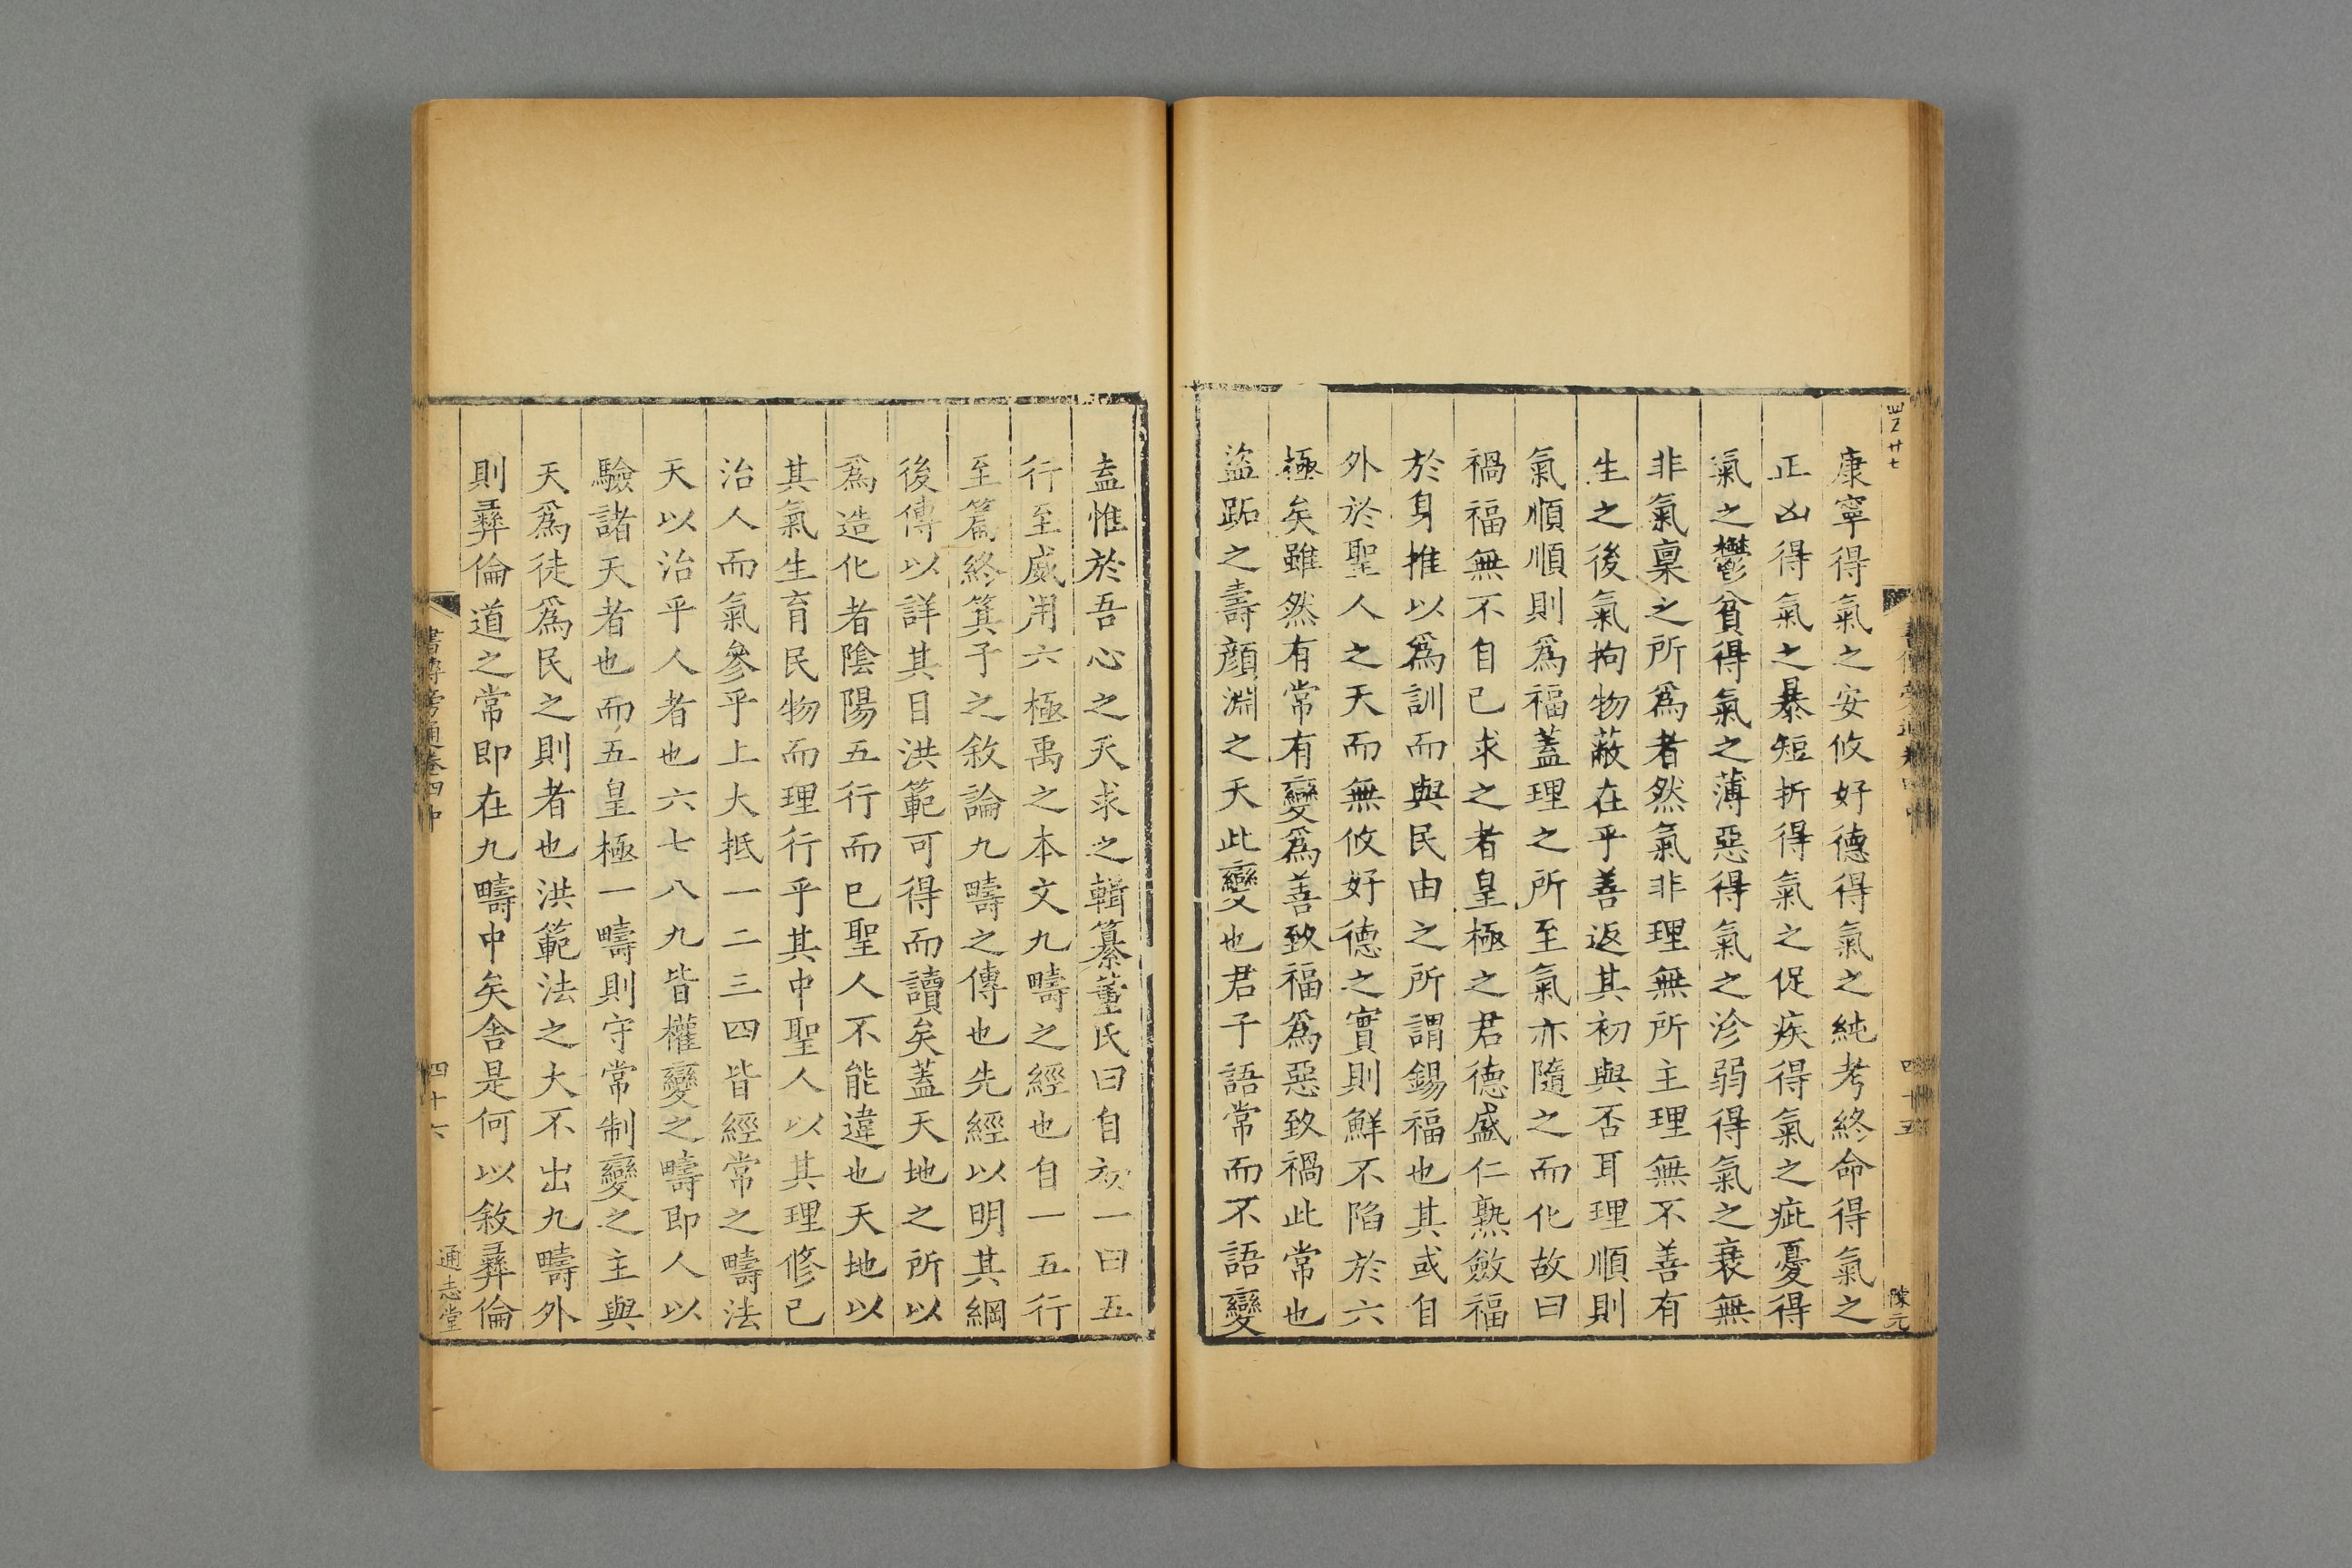 康寧得氣之安攸好德得氣之純考終命得氣之
正凶得氣之暴短折得氣之促疾得氣之疵憂得
氣之鬱貧得氣之薄惡得氣之沴弱得氣之衰無
非氣稟之所爲者然氣非理無所主理無不善有
生之後氣拘物蔽在乎善返其初與否耳理順則
氣順順則爲福蓋理之所至氣亦隨之而化故曰
禍福無不自己求之者皇極之君德盛仁熟斂福
於身推以爲訓而與民由之所謂錫福也其或自
外於聖人之天而無攸好德之實則鮮不陷於六
極矣雖然有常有變爲善致福爲惡致禍此常也
盜跖之壽顔淵之夭此變也君子語常而不語變
四十五
陳元
盍惟於吾心之天求之輯纂董氏曰自初一曰五
行至威用六極禹之本文九疇之經也自一五行
至篇終箕子之敘論九疇之傳也先經以明其綱
後傳以詳其目洪範可得而讀矣蓋天地之所以
爲造化者陰陽五行而已聖人不能違也天地以
其氣生育民物而理行乎其中聖人以其理修已
治人而氣參乎上大抵一二三四皆經常之疇法
天以治乎人者也六七八九皆權變之疇即人以
驗諸天者也而五皇極一疇則守常制變之主與
天爲徒爲民之則者也洪範法之大不出九疇外
則彝倫道之常即在九疇中矣舍是何以敘彝倫
書傳旁通卷四中
四十六
通志堂